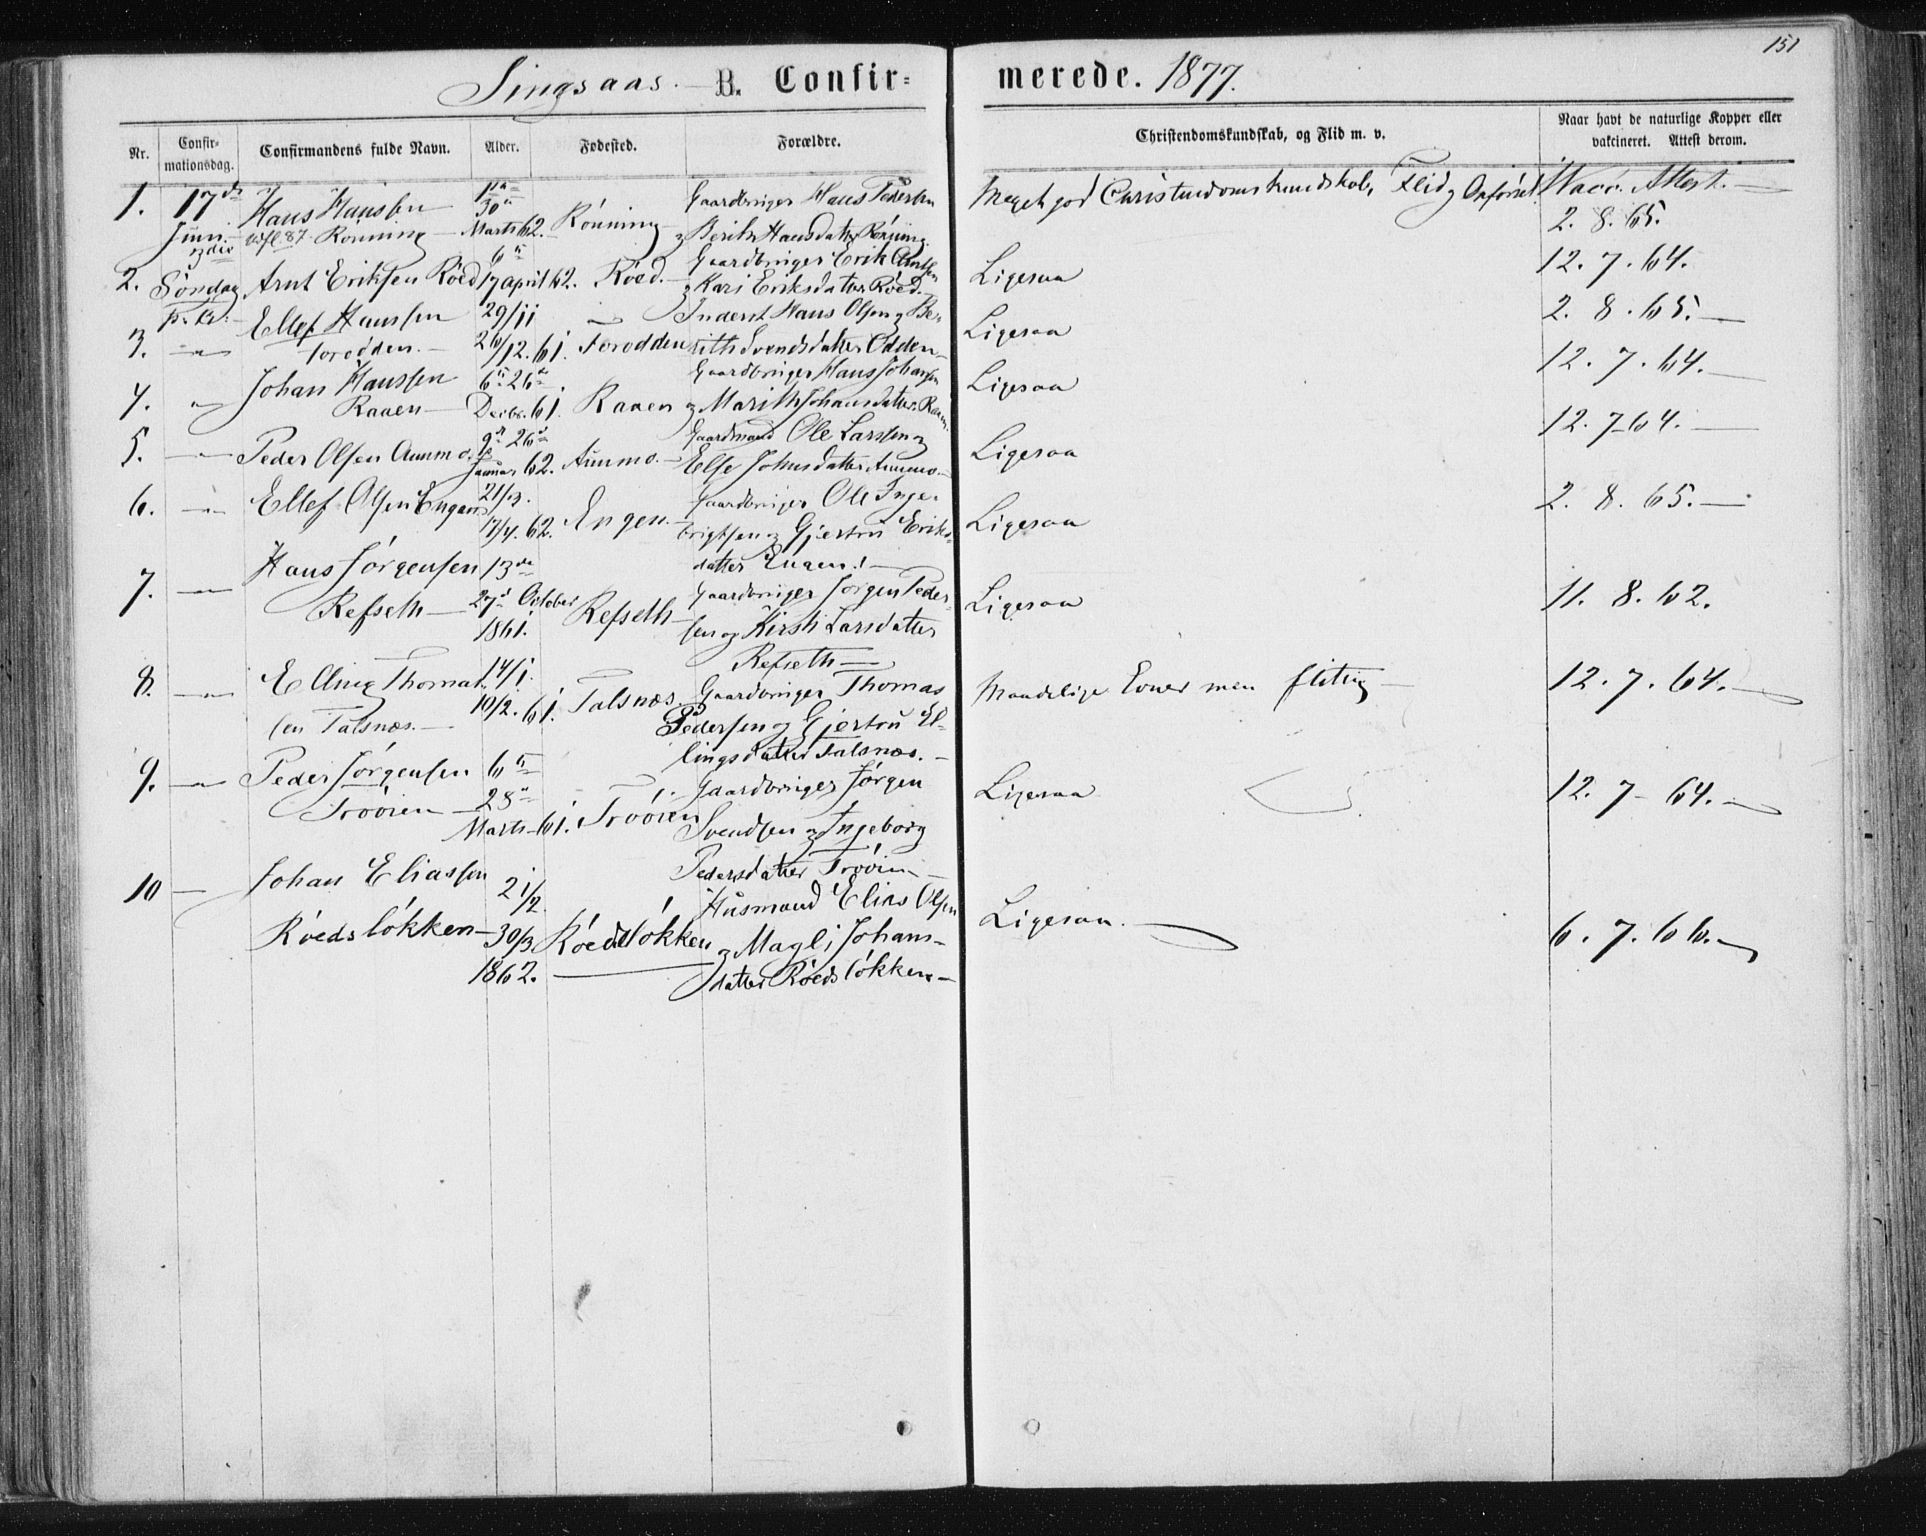 151
Singsaas. B. Confir=merede. 1877.
Nr. Confir-mationsdag. Confirmandens fulde Navn. Alder. Fødested. Forældre. Christendomskundskab, og Flid m. v. Naar havt de naturlige Kopper eller vakcineret. Attest derom.
1. 17de Hans Hanssen 1ste Gaardbruger Hans Pedersen Meget god Christendomskundskab, Flid og Opførsel. Vacc. Attest.
Juni Rønning 30te Marts 62. Rønning og Berith Hansdatter Rønning. 2. 8. 65.
3die 6te Gaardbruger Erik Arntsen 12. 7. 64.
2. Søndag Arnt Eriksen Røed 17 april 62. Røed. og Kari Eriksdatter Røed. Ligesaa
p. Tr. Ellef Hanssen 29/11 Inderst Hans Olsen og Be- Ligesaa 2. 8. 65.
3. Forodden 26/12. 61. Forodden rith Svendsdatter Odden
Johan Hanssen 6te 26de Gaardbruger Hans Johansen Ligesaa 12. 7. 64.
4. Raaen Decbr. 61. Raaen og Marith Johansdatter Raaen.
9de 26de Gaardmand Ole Larssen og 12. 7. 64.
5. Peder Olsen Aunmo Januar 62. Aunmo. Else Johnsdatter Aunmo. Ligesaa
6. Ellef Olsen Engen 21/3. Gaardbruger Ole Inge- 2. 8. 65.
17/4. 62. Engen. brigtsen og Gjertru Eriks- Ligesaa
Hans Jørgensen 13de datter Engen.
7. Refseth 27de October Refseth Gaardbruger Jørgen Peder- Ligesaa 11. 8. 62.
1861. sen og Kirsti Larsdatter
Refseth
8. Elling Thomas- 14/1. Talsnæs. Gaardbruger Thomas Maadelige Evner men flittig 12. 7. 64.
sen Talsnæs. 10/2. 61. Pedersen og Gjertru El-
lingsdatter Talsnæs.
9. Peder Jørgensen 6te Gaardbruger Jørgen Ligesaa 12. 7. 64.
Trøøien 28de
Marts 61. Trøøien Svendsen og Ingeborg
Pedersdatter Trøøien
10 Johan Eliassen 21/2 Husmand Elias Olsen Ligesaa.
Røedsløkken 30/3 Røedsløkken og Magli Johans- 6. 7. 66.
1862. datter Røedsløkken